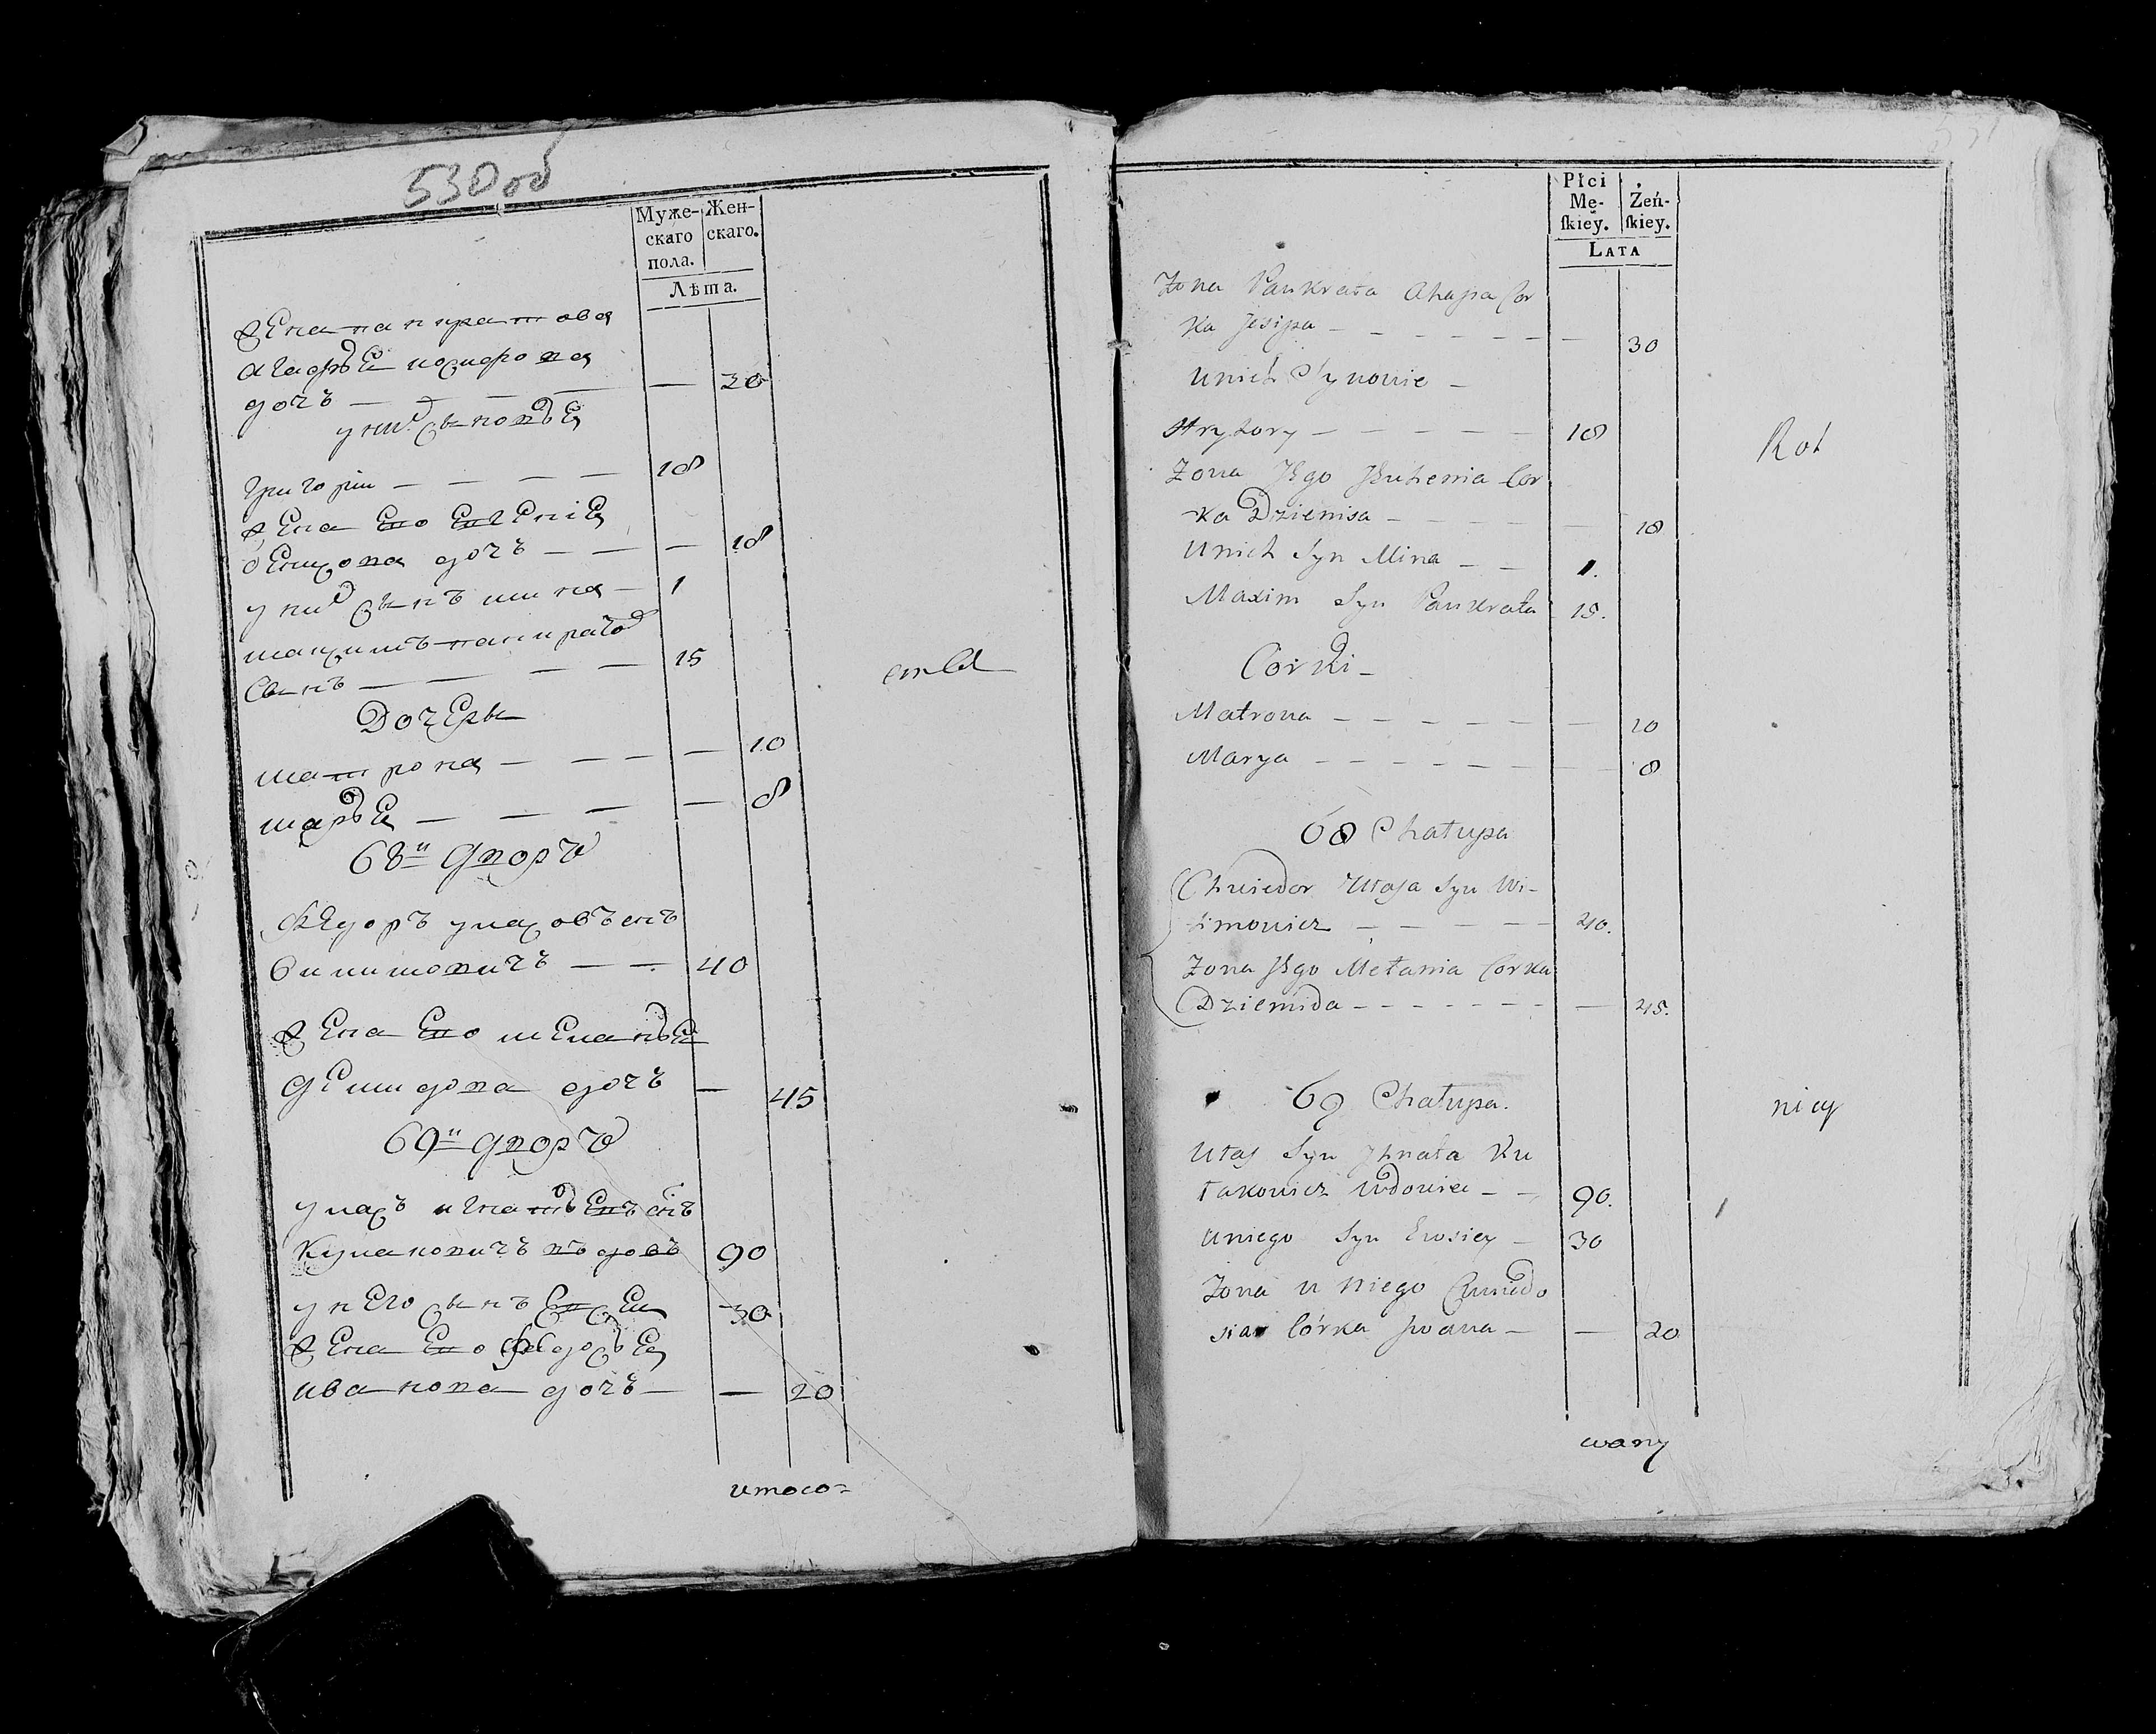 530 об
Муже- Жен-
скаго скаго.
пола.
Лѣта.
жена панкратова
агафья
дочъ — — — — — 30
у них сыновья
григорiи — — — — 18
жена ево евгенiя
денисова дочъ — — — 18
у них сынъ мина — 1
максимъ панкратов
сынъ — — — — 15
Дочеры
матрона — — — — — 10
марья — — — — 8
68й дворъ
Федоръ уласовъ снъ
билимовичъ — — 40
жена ево меланья
демидова дочъ — 45
69й дворъ
уласъ игнатьевъ снъ
Кулаковичъ вдовъ 90
у него сынъ евсеи 30
жена ево федосья
иванова дочъ — — 20
итого=
Płci
Mę- Żeń-
ſkiey. ſkiey.
LATA
Zona Pankrata Ahapa Cor
ka Jesipa — — — — — — 30
unich Synowie —
Hryhory — — — — — 18
Rot
Zona Jego Jeuhenia Cor
ka Dzienisa — — — — 18
Unich Syn Mina — — 1.
Maxim Syn Pankrata 15.
Corki —
Matrona — — — — — — 10
Marya — — — — — — — 8
68 Chałupa
Chwiedor Ułasa Syn Wi-
limowicz — — — — — 40.
Zona Jego Mełania Corka
Dziemida — — — — — — — 45.
69 Chałupa.
nicy
Ułas Syn Jhnata Ku
łakowicz wdowiec — — 90.
uniego Syn Ewsiey — 30
Zona u niego Chwiedo
sia Córka Jwana — — 20
wany